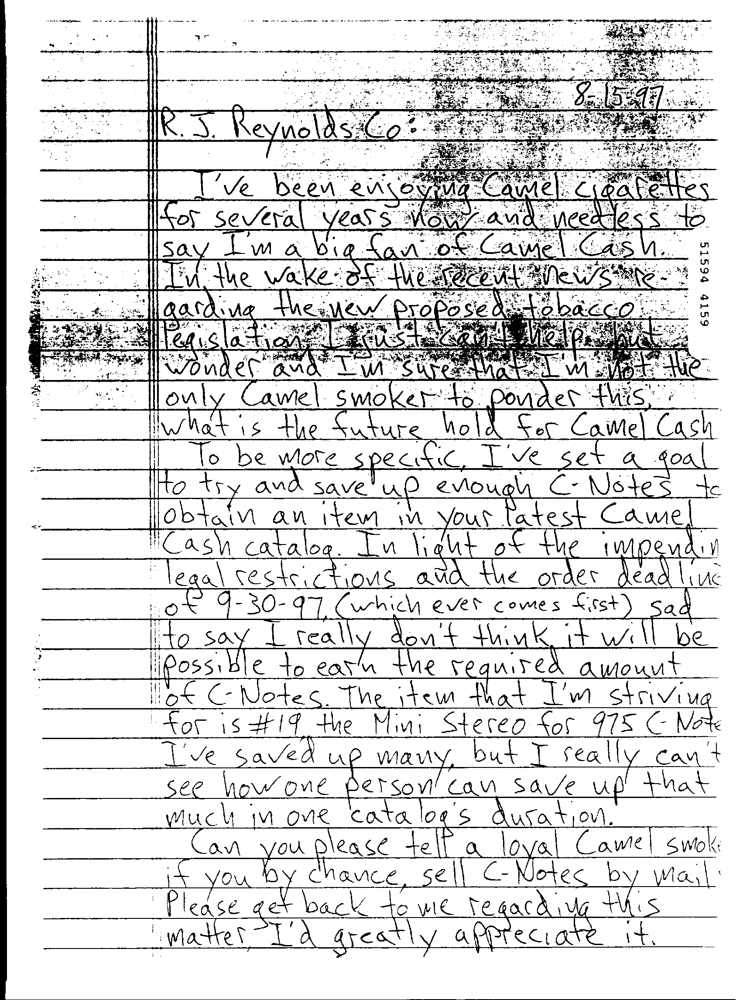 8-15-97
R. J. Reynolds Co:
I've been enjoying Camel cigarettes
for several years now, and needless to
say I'm a big fan of Camel Cash.
In the wake of the recent news re-
garding the new proposed tobacco
legislation, I just can't help but
wonder and I'm sure that I'm not the
only Camel smoker to ponder this,
what is the future hold for Camel Cash
To be more specific, I've set a goal
to try and save up enough C-Notes to
obtain an item in your latest Camel
Cash catalog. In light of the impendin
legal restrictions and the order deadline
of 9-30-97, (which ever comes first) sad
to say I really don't think it will be
possible to earn the required amount
of C-Notes. The item that I'm striving
for is #19, the Mini Stereo for 975 C-Note
I've saved up many, but I really can't
see how one person can save up that
much in one catalog's duration.
Can you please tell a loyal Camel smoke
if you by chance, sell C-Notes by mail
Please get back to me regarding this
matter, I'd greatly appreciate it.
51594 4159